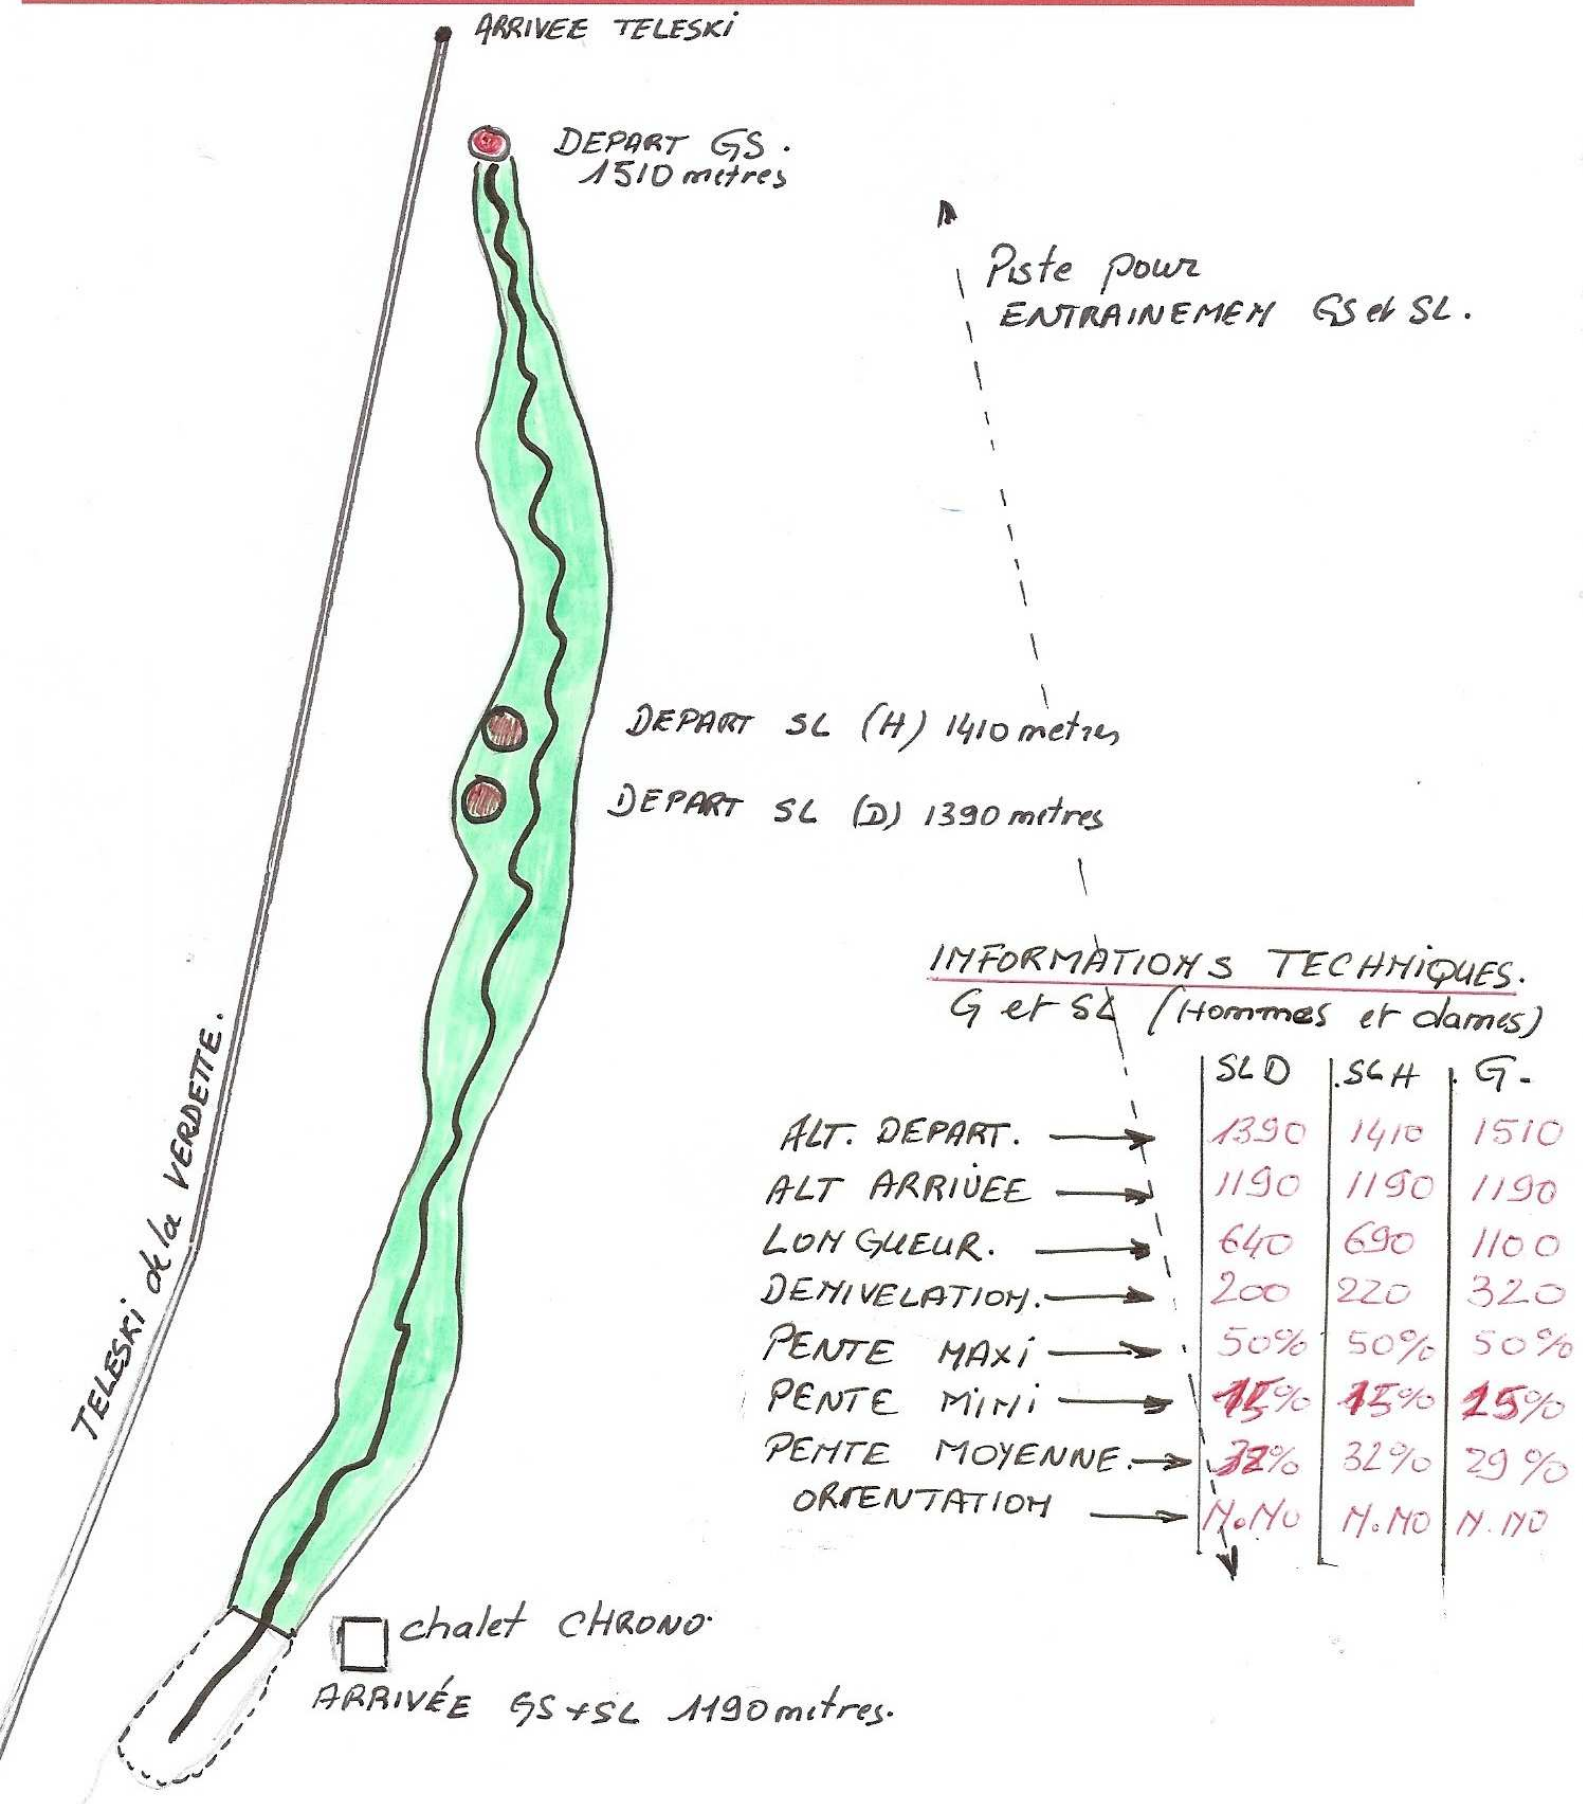 ARRIVEE TELESKI
DEPART GS.
1510 metres
Piste pour
ENTRAINEMEN GS et SL.
DEPART SL (H) 1410 metres
DEPART SL (D) 1390 metres
TELESKI de la VERDETTE.
INFORMATIONS TECHNIQUES.
G et SL (Hommes et dames)
SLD SLH G.
ALT. DEPART. 1390 1410 1510
ALT ARRIVEE 1190 1190 1190
LONGUEUR. 640 690 1100
DENIVELATION. 200 220 320
PENTE MAXI 50% 50% 50%
PENTE MINI 15% 15% 15%
PENTE MOYENNE. 32% 32% 29%
ORIENTATION N.NO N.NO N.NO
chalet CHRONO.
ARRIVÉE GS+SL 1190 metres.